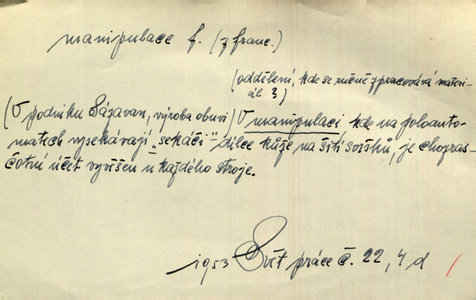 manipulace f. (z franc.)
(oddělení, kde se ručně zpracovává materi-
ál 3)
(V podniku Sázavan, výroba obuvi) V manipulaci kde na poloauto-
matech vysekávají „sekáči“ dílce kůže na šití svršků, je chozras-
čotní účet vyvěšen u každého stroje.
1953 Svět práce č. 22, 4 d